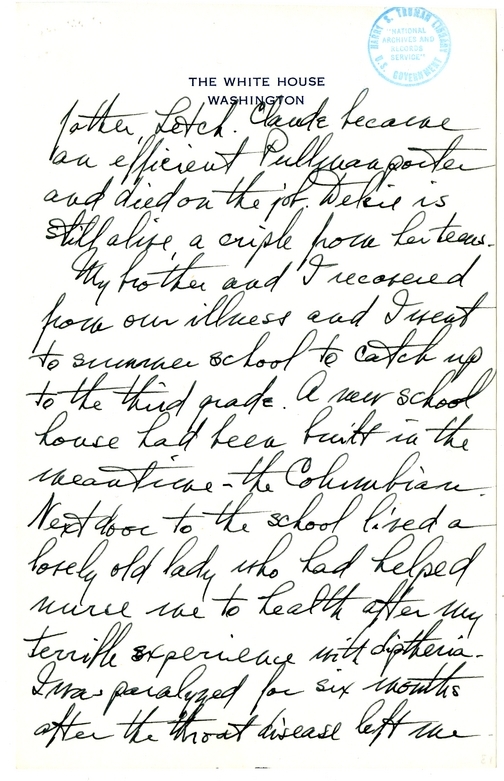 HARRY S. TRUMAN LIBRARY
"NATIONAL
ARCHIVES AND
RECORDS
SERVICE"
U.S. GOVERNMENT
THE WHITE HOUSE
WASHINGTON
father, Letch. Claude became
an efficient Pullman porter
and died on the job. Delsie is
still alive, a criple from her teens.
My brother and I recovered
from our illness and I went
to summer school to catch up
to the third grade. A new school
house had been built in the
meantime - the Columbian.
Next door to the school lived a
lovely old lady who had helped
nurse me to health after my
terrible experience with diptheria.
I was paralyzed for six months
after the throat disease left me